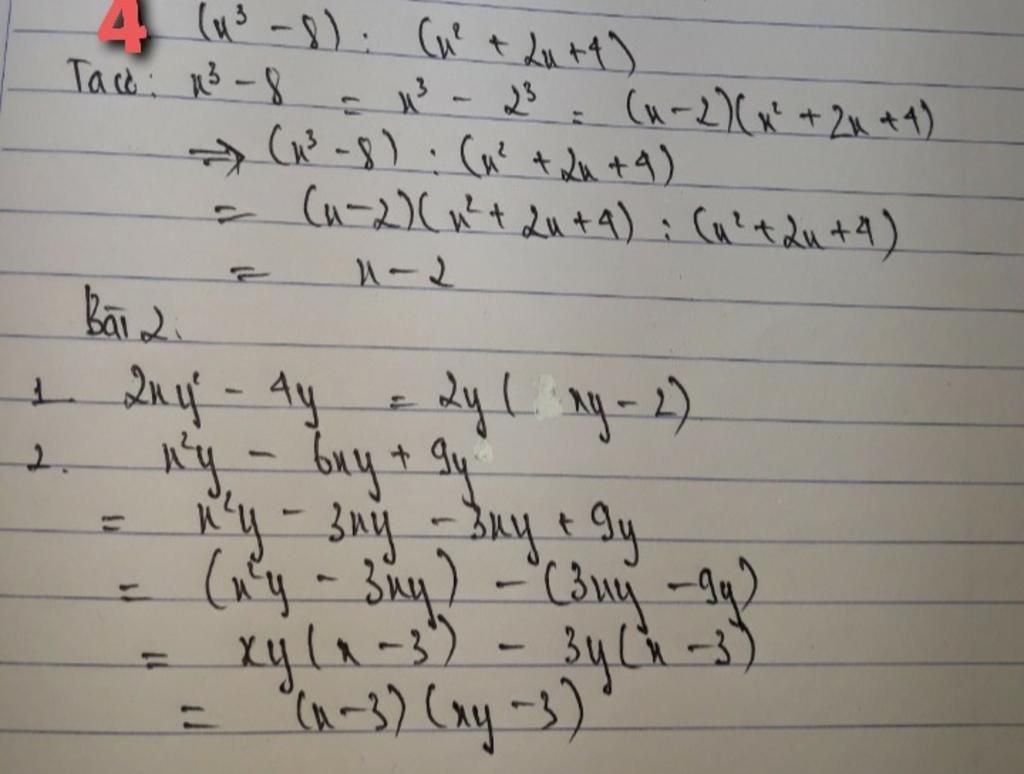 4 (x³ - 8) : (x² + 2x + 4)
Ta có: x³ - 8 = x³ - 2³ = (x - 2)(x² + 2x + 4)
⇒ (x³ - 8) : (x² + 2x + 4)
= (x - 2)(x² + 2x + 4) : (x² + 2x + 4)
= x - 2
Bài 2.
1. 2xy² - 4y = 2y ( xy - 2)
2. x²y - 6xy + 9y
= x²y - 3xy - 3xy + 9y
= (x²y - 3xy) - (3xy - 9y)
= xy(x - 3) - 3y(x - 3)
= (x - 3)(xy - 3)